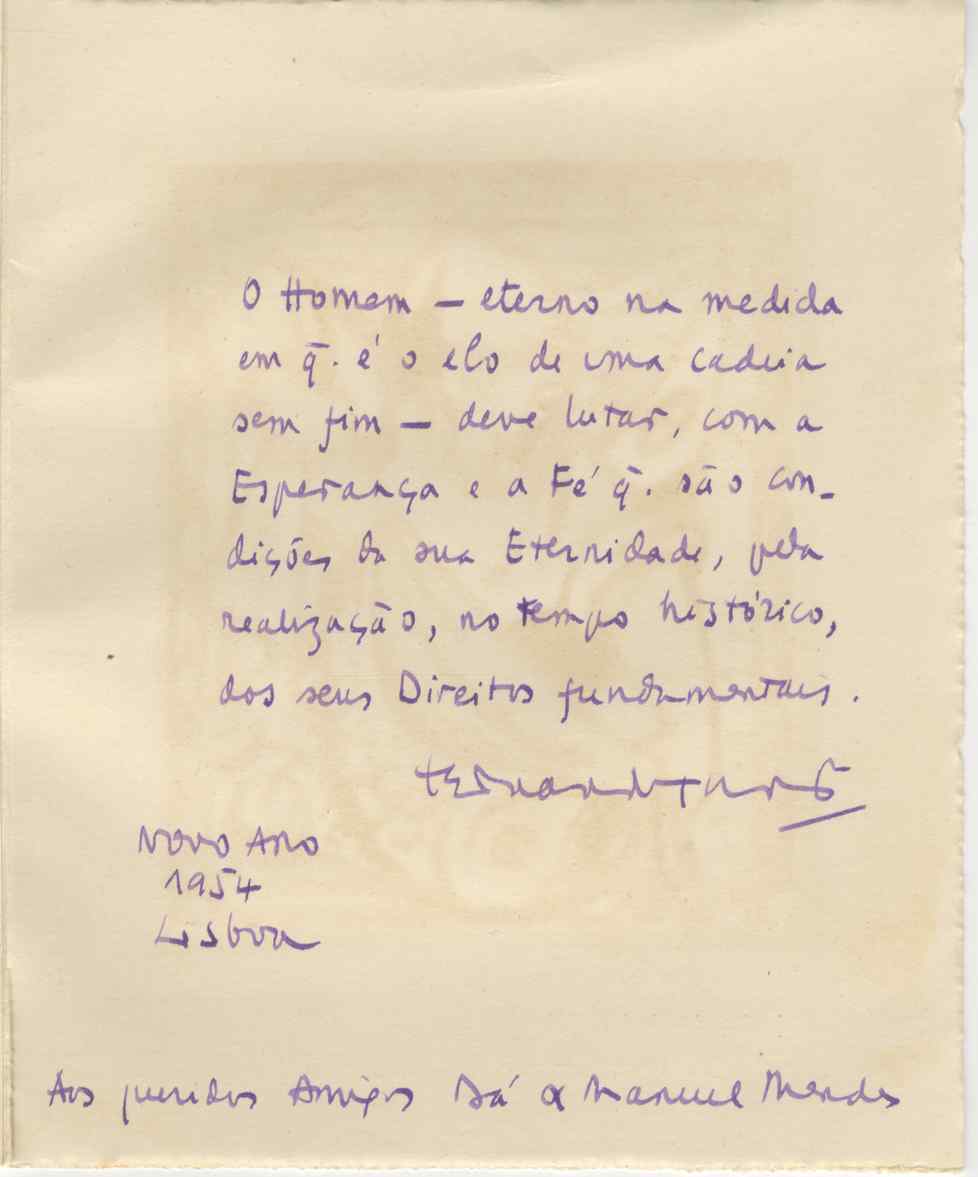 O Homem — eterno na medida
em q̃. é o elo de uma cadeia
sem fim — deve lutar, com a
Esperança e a Fé q̃. são con-
dições da sua Eternidade, pela
realização, no tempo histórico,
dos seus Direitos fundamentais.
Novo Ano
1954
Lisboa
Aos queridos Amigos Bá & Manuel Mendes